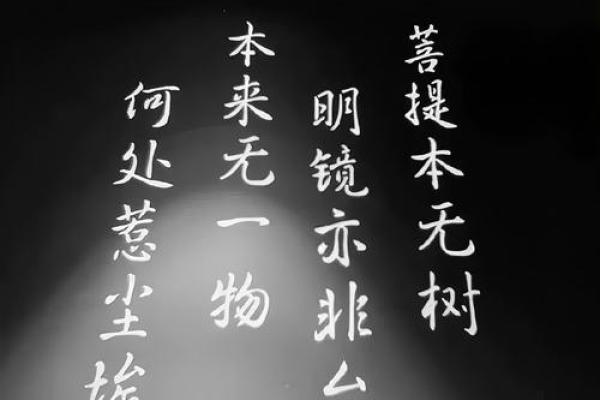 菩提本无树
明镜亦非
本来无一物
何处惹尘埃